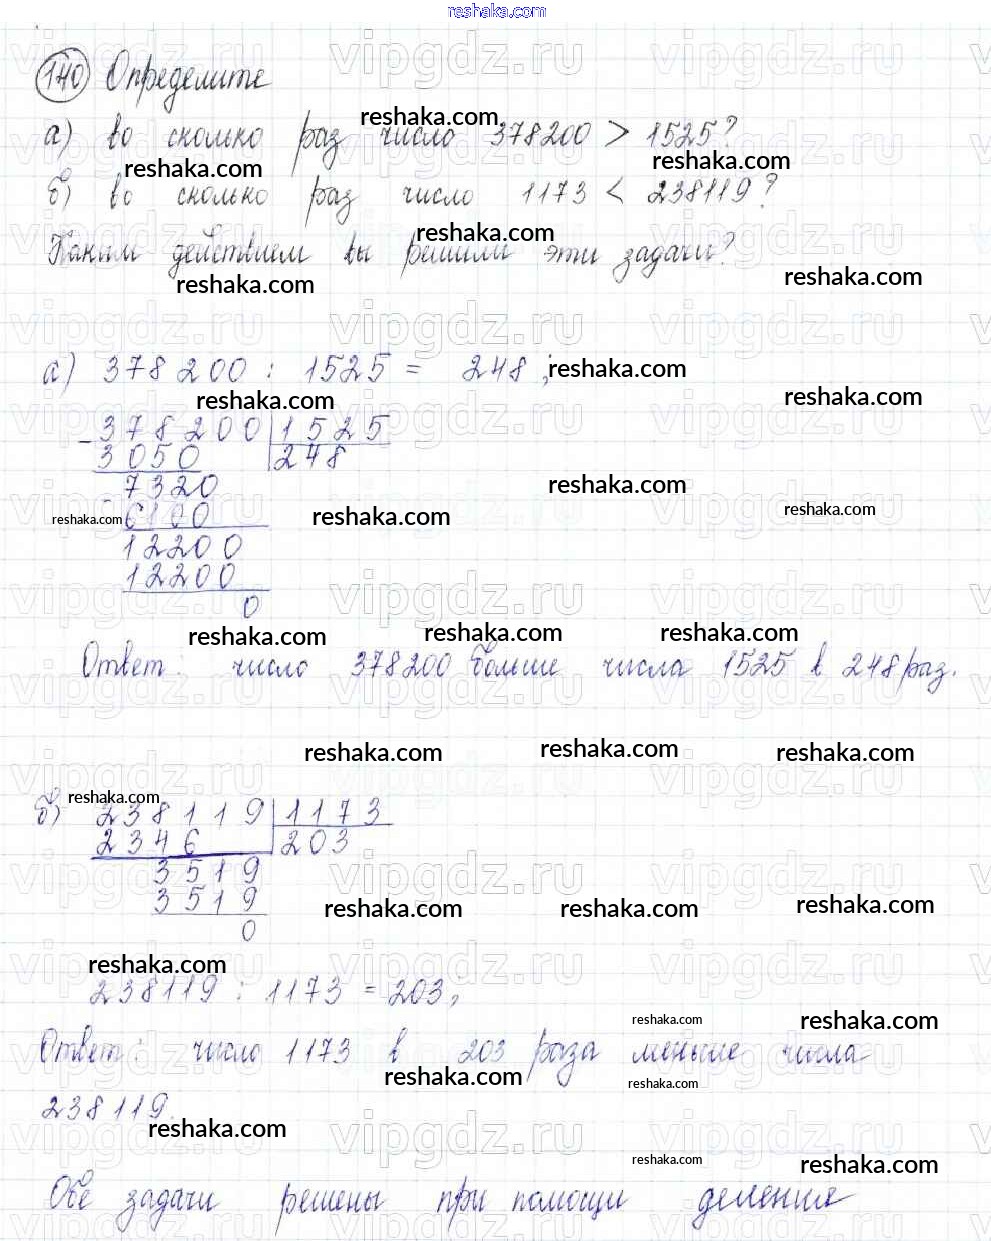 reshaka.com
140 Определите
а) во сколько раз число 378200 > 1525?
б) во сколько раз число 1173 < 238119?
Каким действием вы решили эти задачи?
а) 378200 : 1525 = 248;
- 378200 | 1525
3050 | 248
- 7320
6100
12200
12200
0
Ответ: число 378200 больше числа 1525 в 248 раз.
б) 238119 | 1173
2346 | 203
3519
3519
0
238119 : 1173 = 203;
Ответ: число 1173 в 203 раза меньше числа
238119.
Обе задачи решены при помощи деления